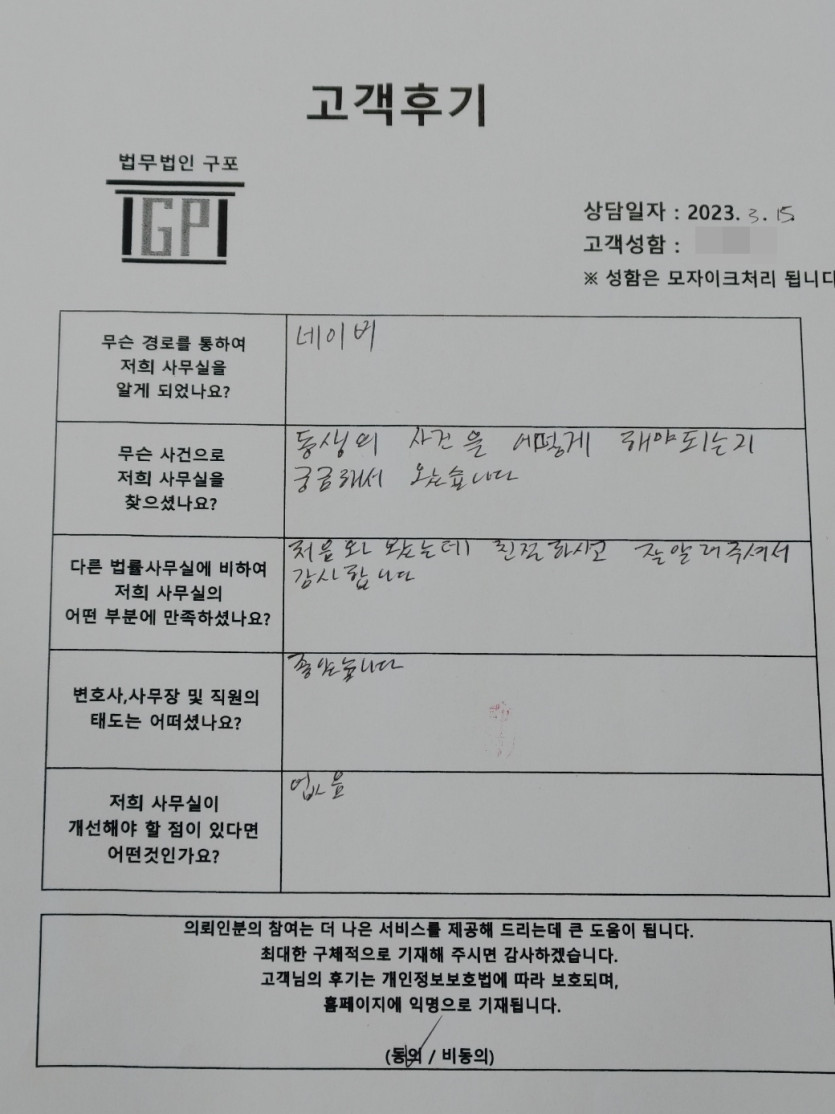 고객후기
법무법인 구포
IGPI
상담일자 : 2023. 3. 15.
고객성함 :
※ 성함은 모자이크처리 됩니다
무슨 경로를 통하여
저희 사무실을
알게 되었나요?
네이버
무슨 사건으로
저희 사무실을
찾으셨나요?
동생의 사건을 어떻게 해야되는지
궁금해서 왔습니다
다른 법률사무실에 비하여
저희 사무실의
어떤 부분에 만족하셨나요?
처음 와 봤는데 친절하시고 잘알려주셔서
감사합니다
변호사,사무장 및 직원의
태도는 어떠셨나요?
좋았습니다
저희 사무실이
개선해야 할 점이 있다면
어떤것인가요?
없음
의뢰인분의 참여는 더 나은 서비스를 제공해 드리는데 큰 도움이 됩니다.
최대한 구체적으로 기재해 주시면 감사하겠습니다.
고객님의 후기는 개인정보보호법에 따라 보호되며,
홈페이지에 익명으로 기재됩니다.
(동의 / 비동의)